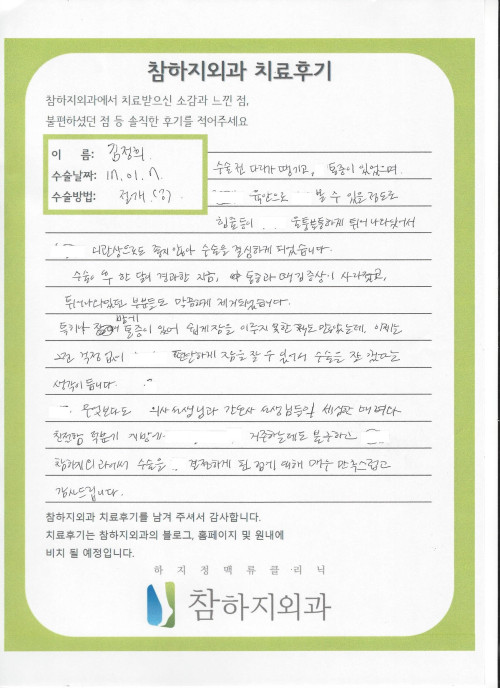 참하지외과 치료후기
참하지외과에서 치료받으신 소감과 느낀 점,
불편하셨던 점 등 솔직한 후기를 적어주세요
이 름: 김정희
수술날짜: 17. 01. 7.
수술방법: 절개 (양)
수술 전 다리가 땡기고, 통증이 있었으며
육안으로 볼 수 있을 정도로
힘줄등이 울퉁불퉁하게 튀어 나와있어서
미관상으로도 좋지 않아 수술을 결심하게 되었습니다.
수술 후 한 달이 경과한 지금, 통증과 땡김증상이 사라졌고,
튀어나와있던 부분들도 말끔하게 제거되었습니다.
특히나 밤에 통증이 있어 쉽게 잠을 이루지 못한 적도 많았는데, 이제는
그런 걱정 없이 편안하게 잠을 잘 수 있어서 수술을 잘 했다는
생각이 듭니다.
무엇보다도 의사선생님과 간호사 선생님들의 세심한 배려와
친절함 때문에 거주하는데도 불구하고
참하지외과에서 수술을 결정하게 된 것에 대해 매우 만족스럽고
감사드립니다.
참하지외과 치료후기를 남겨 주셔서 감사합니다.
치료후기는 참하지외과의 블로그, 홈페이지 및 원내에
비치 될 예정입니다.
하지정맥류클리닉
참하지외과